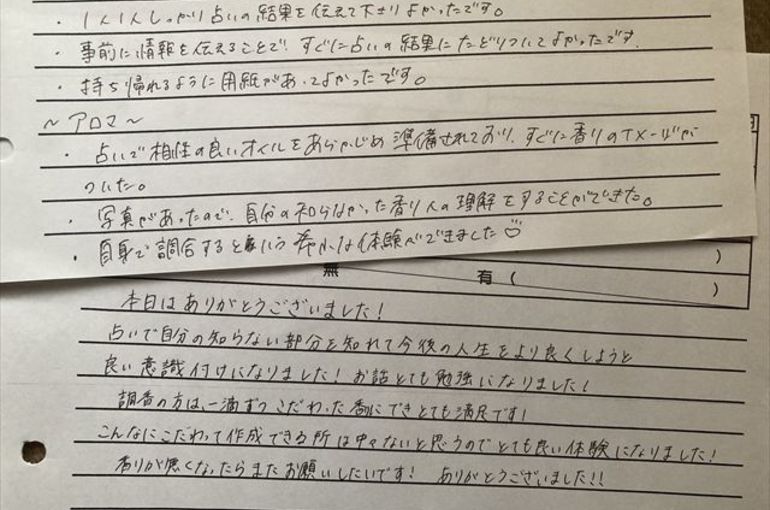 ・1人1人しっかり占いの結果を伝えて下さりよかったです。
・事前に情報を伝えることで、すぐに占いの結果にたどりついてよかったです。
・持ち帰れるように用紙があってよかったです。
～アロマ～
・占いで相性の良いオイルをあらかじめ準備されており、すぐに香りのイメージが
ついた。
・写真があったので、自分の知らなかった香りへの理解をすることができた。
・自身で調合するという 体験ができました
無 有( )
)
本日はありがとうございました!
占いで自分の知らない部分を知れて今後の人生をより良くしようと
良い意識付けになりました! お話とても勉強になりました!
調香の方は、一滴ずつこだわった香にできとても満足です!
こんなにこだわって作成できる所は中々ないと思うのでとても良い体験になりました!
香りが無くなったらまたお願いしたいです! ありがとうございました!!